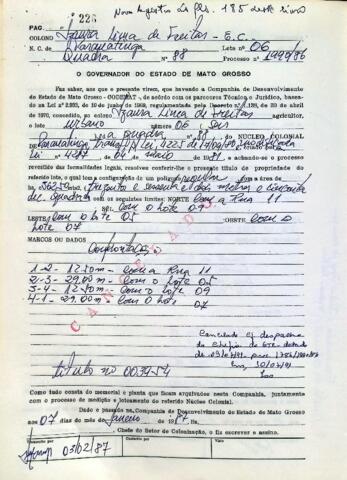 Novo Registro às fls. 185 deste livro
PAG 226
COLONO Izaura Lina de Freitas - E.C.
N. C. de Paranatinga Lote nº 06
Quadra nº 88 Processo 1999/86
O GOVERNADOR DO ESTADO DE MATO GROSSO
Faz saber, aos que o presente virem, que havendo a Companhia de Desenvolvimento
do Estado de Mato Grosso - CODEMAT, de acordo com os pareceres Técnico e Jurídico, baseado
na Lei nº 2.933, de 10 de junho de 1969, regulamentada pelo Decreto nº 1.138, de 29 de abril
de 1970, concedido, ao colono Izaura Lina de Freitas
agricultor,
o lote urbano número 06, sito
na quadra 88, NÚCLEO COLONIAL
de Paranatinga
Lei 4282 de 04 maio 1981, e achando-se o processo
revestido das formalidades legais, resolvem conferir-lhe o presente título de propriedade do
referido lote, o qual tem a configuração de um polígono regular com a área de
362,50 trezentos e sessenta e dois metros e cinquenta
dm quadrados e os seguintes limites: NORTE com a Rua 11
SUL com o lote 09
LESTE com o lote 05 OESTE com o
lote 07
MARCOS OU DADOS
Confrontações
1-2 - 12.50m - com a Rua 11
2-3 - 29.00m - com o lote 05
3-4 - 12.50m - com o lote 09
4-1 - 29.00m - com o lote 07
CANCELADO
Cancelado cf despacho
título nº 003454
Como tudo consta do memorial e planta que ficam arquivados nesta Companhia, juntamente
com o processo de medição e loteamento do referido Núcleo Colonial.
Dado e passado na Companhia de Desenvolvimento do Estado de Mato Grosso
aos 07 dias do mês de Janeiro de 1987.
Chefe do Setor de Colonização, o fiz escrever e assino.
03/02/87